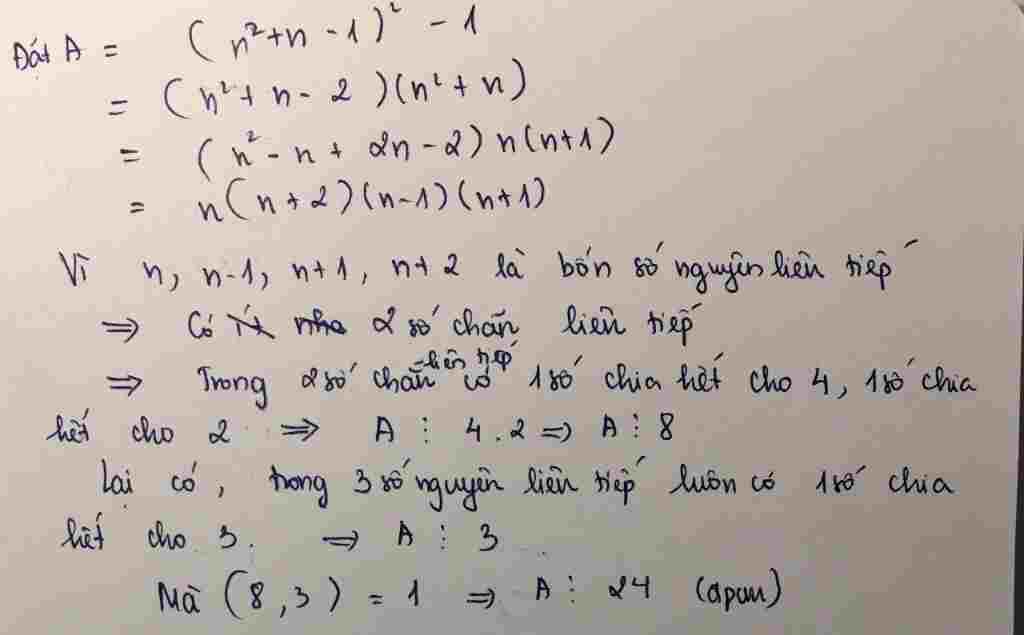 Đặt A = (n²+n-1)² - 1
= (n²+n-2)(n²+n)
= (n²-n+2n-2)n(n+1)
= n(n+2)(n-1)(n+1)
Vì n, n-1, n+1, n+2 là bốn số nguyên liên tiếp
⇒ Có 2 số chẵn liên tiếp
⇒ Trong 2 số chẵn liên tiếp có 1 số chia hết cho 4, 1 số chia
hết cho 2 ⇒ A ⋮ 4.2 ⇒ A ⋮ 8
Lại có, trong 3 số nguyên liên tiếp luôn có 1 số chia
hết cho 3. ⇒ A ⋮ 3
Mà (8,3) = 1 ⇒ A ⋮ 24 (đpcm)